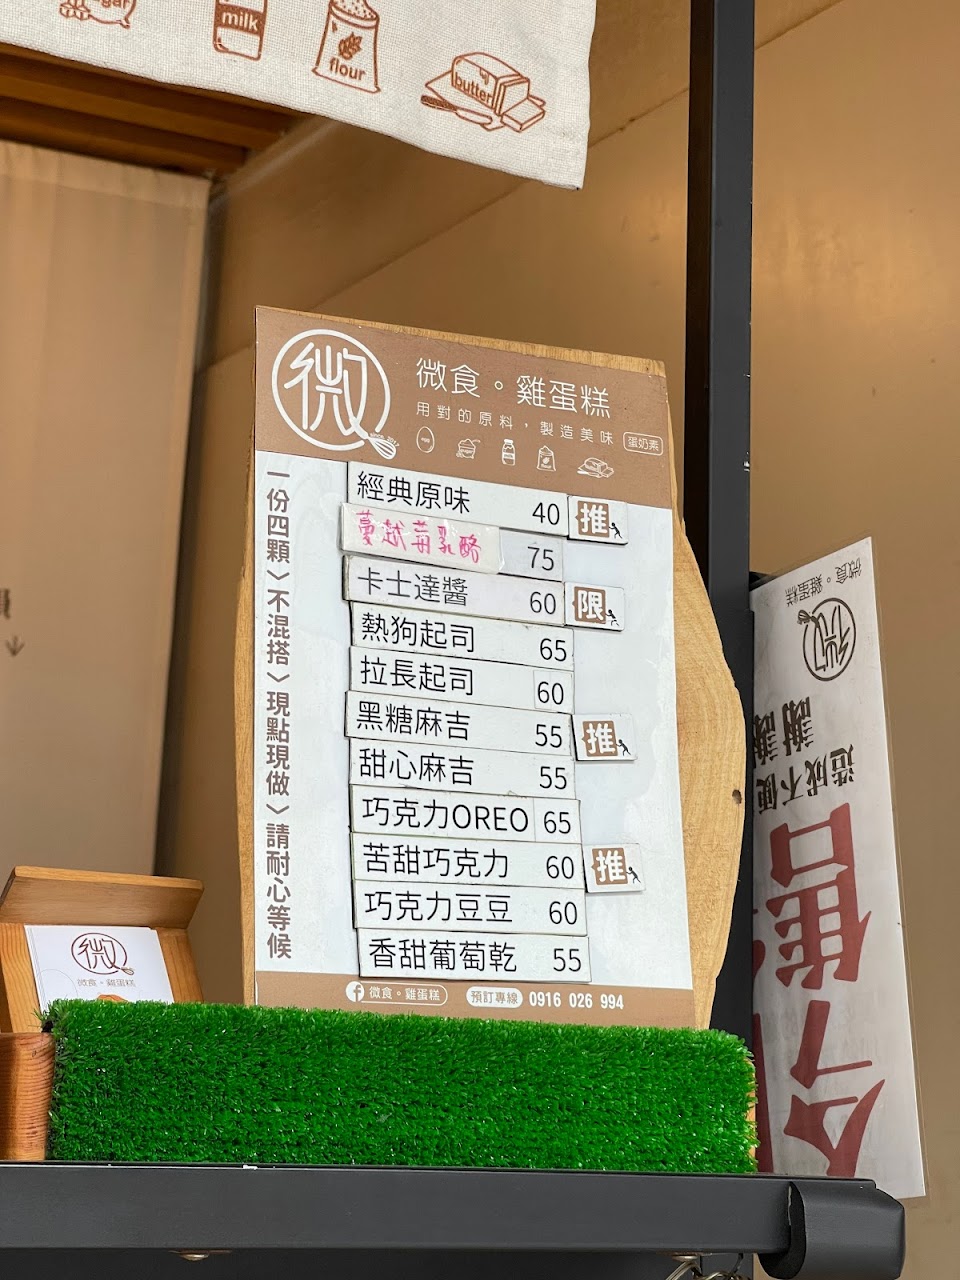 milk
flour
butter
微
微食。雞蛋糕
用對的原料，製造美味
蛋奶素
一份四顆〉不混搭〉現點現做〉請耐心等候
經典原味 40 推
蔓越莓乳酪 75
卡士達醬 60 限
熱狗起司 65
拉長起司 60
黑糖麻吉 55 推
甜心麻吉 55
巧克力OREO 65
苦甜巧克力 60 推
巧克力豆豆 60
香甜葡萄乾 55
微食。雞蛋糕 預訂專線 0916 026 994
微
微食。雞蛋糕
微食。雞蛋糕
微
造成不便
謝謝
今
售